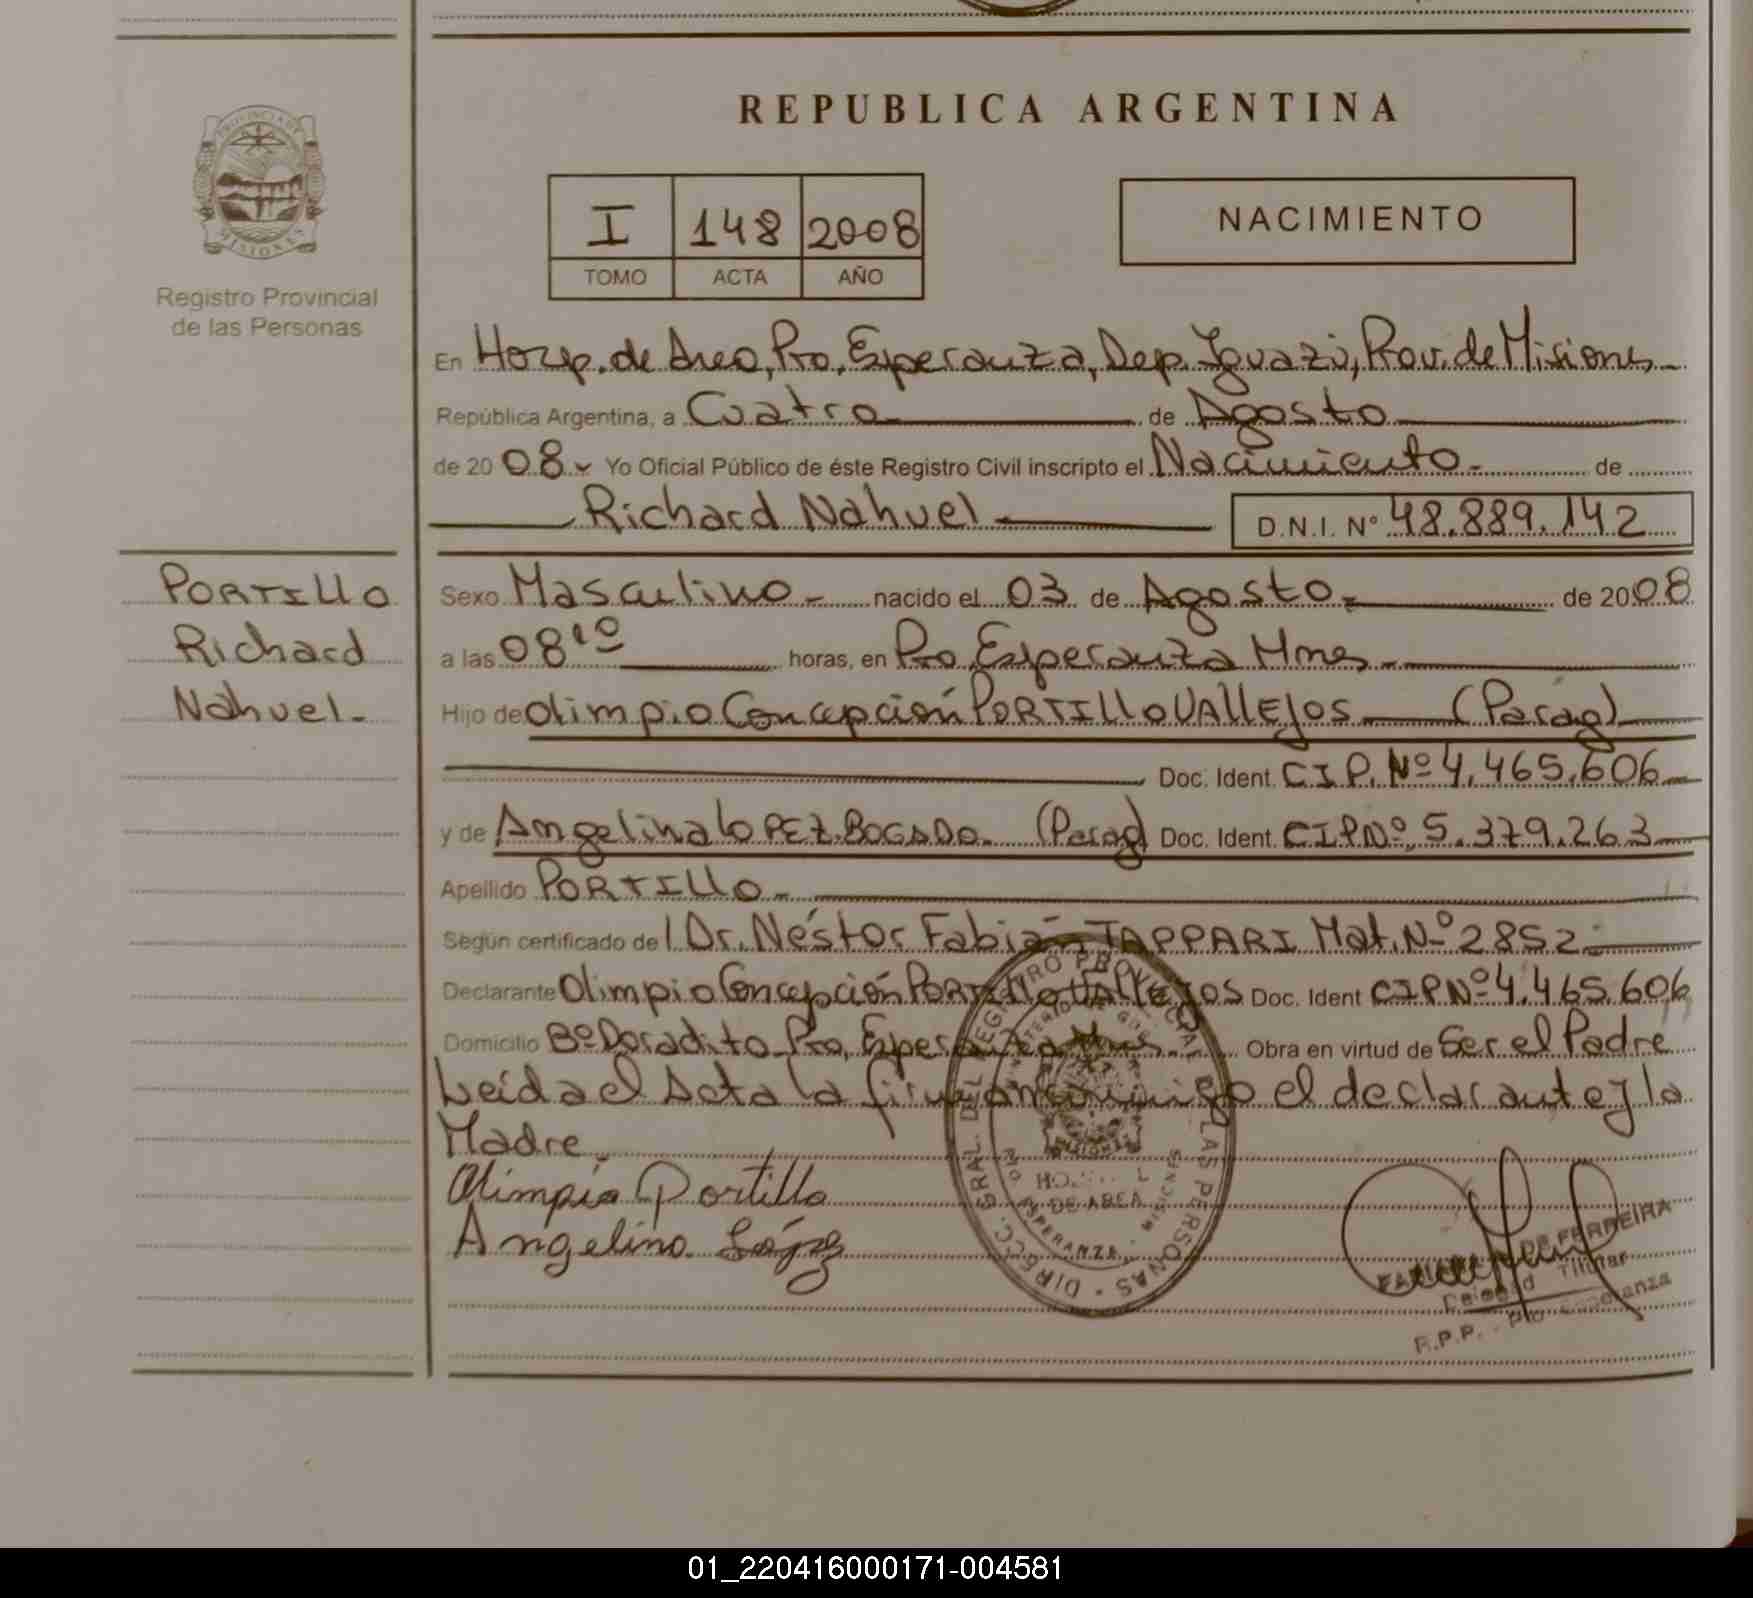 REPUBLICA ARGENTINA
PROVINCIA DE MISIONES
Registro Provincial
de las Personas
I 148 2008
TOMO ACTA AÑO
NACIMIENTO
En Hosp. de Area, Pto. Esperanza, Dep. Iguazú, Prov. de Misiones
República Argentina, a Cuatro de Agosto
de 2008 Yo Oficial Público de éste Registro Civil inscripto el Nacimiento. de
Richard Nahuel D.N.I. Nº 48.889.142
PORTILLO
Richard
Nahuel.
Sexo Masculino nacido el 03 de Agosto de 2008
a las 08¹⁰ horas, en Pto Esperanza Mnes
Hijo de Olimpio Concepción PORTILLO VALLEJOS (Parag)
Doc. Ident. C.I.P. Nº 4.465.606
y de Angelina LOPEZ BOGADO. (Parag) Doc. Ident. C.I.P Nº 5.379.263
Apellido PORTILLO
Según certificado del Dr. Néstor Fabián TAPPARI Mat. Nº 2852
Declarante Olimpio Concepción PORTILLO VALLEJOS Doc. Ident C.I.P Nº 4.465.606
Domicilio Bº Doradito Pto, Esperanza Mnes Obra en virtud de Ser el Padre
Leída el Acta la firman conmigo el declarante y la
Madre.
Olimpio Portillo
Angelina López
DIRECC. GRAL. DEL REGISTRO PROVINCIAL DE LAS PERSONAS
DE AREA
ESPERANZA - MISIONES
DE FERREIRA
Titular
R.P.P. - Pto Esperanza
01_220416000171-004581